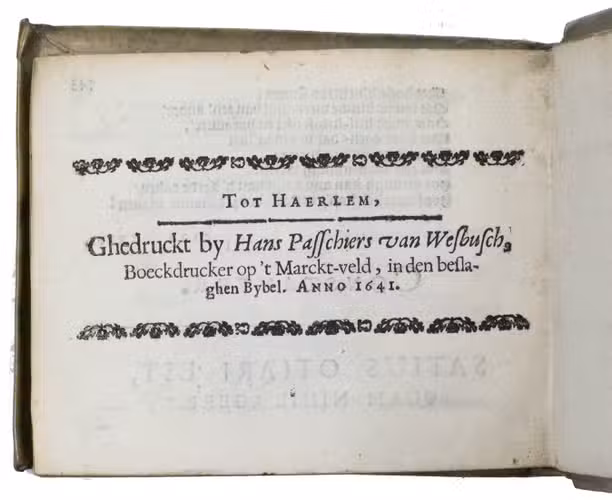 TOT HAERLEM,
Ghedruckt by Hans Paſſchiers van Weſbuſch,
Boeckdrucker op 't Marckt-veld, in den beſla-
ghen Bybel. ANNO 1641.